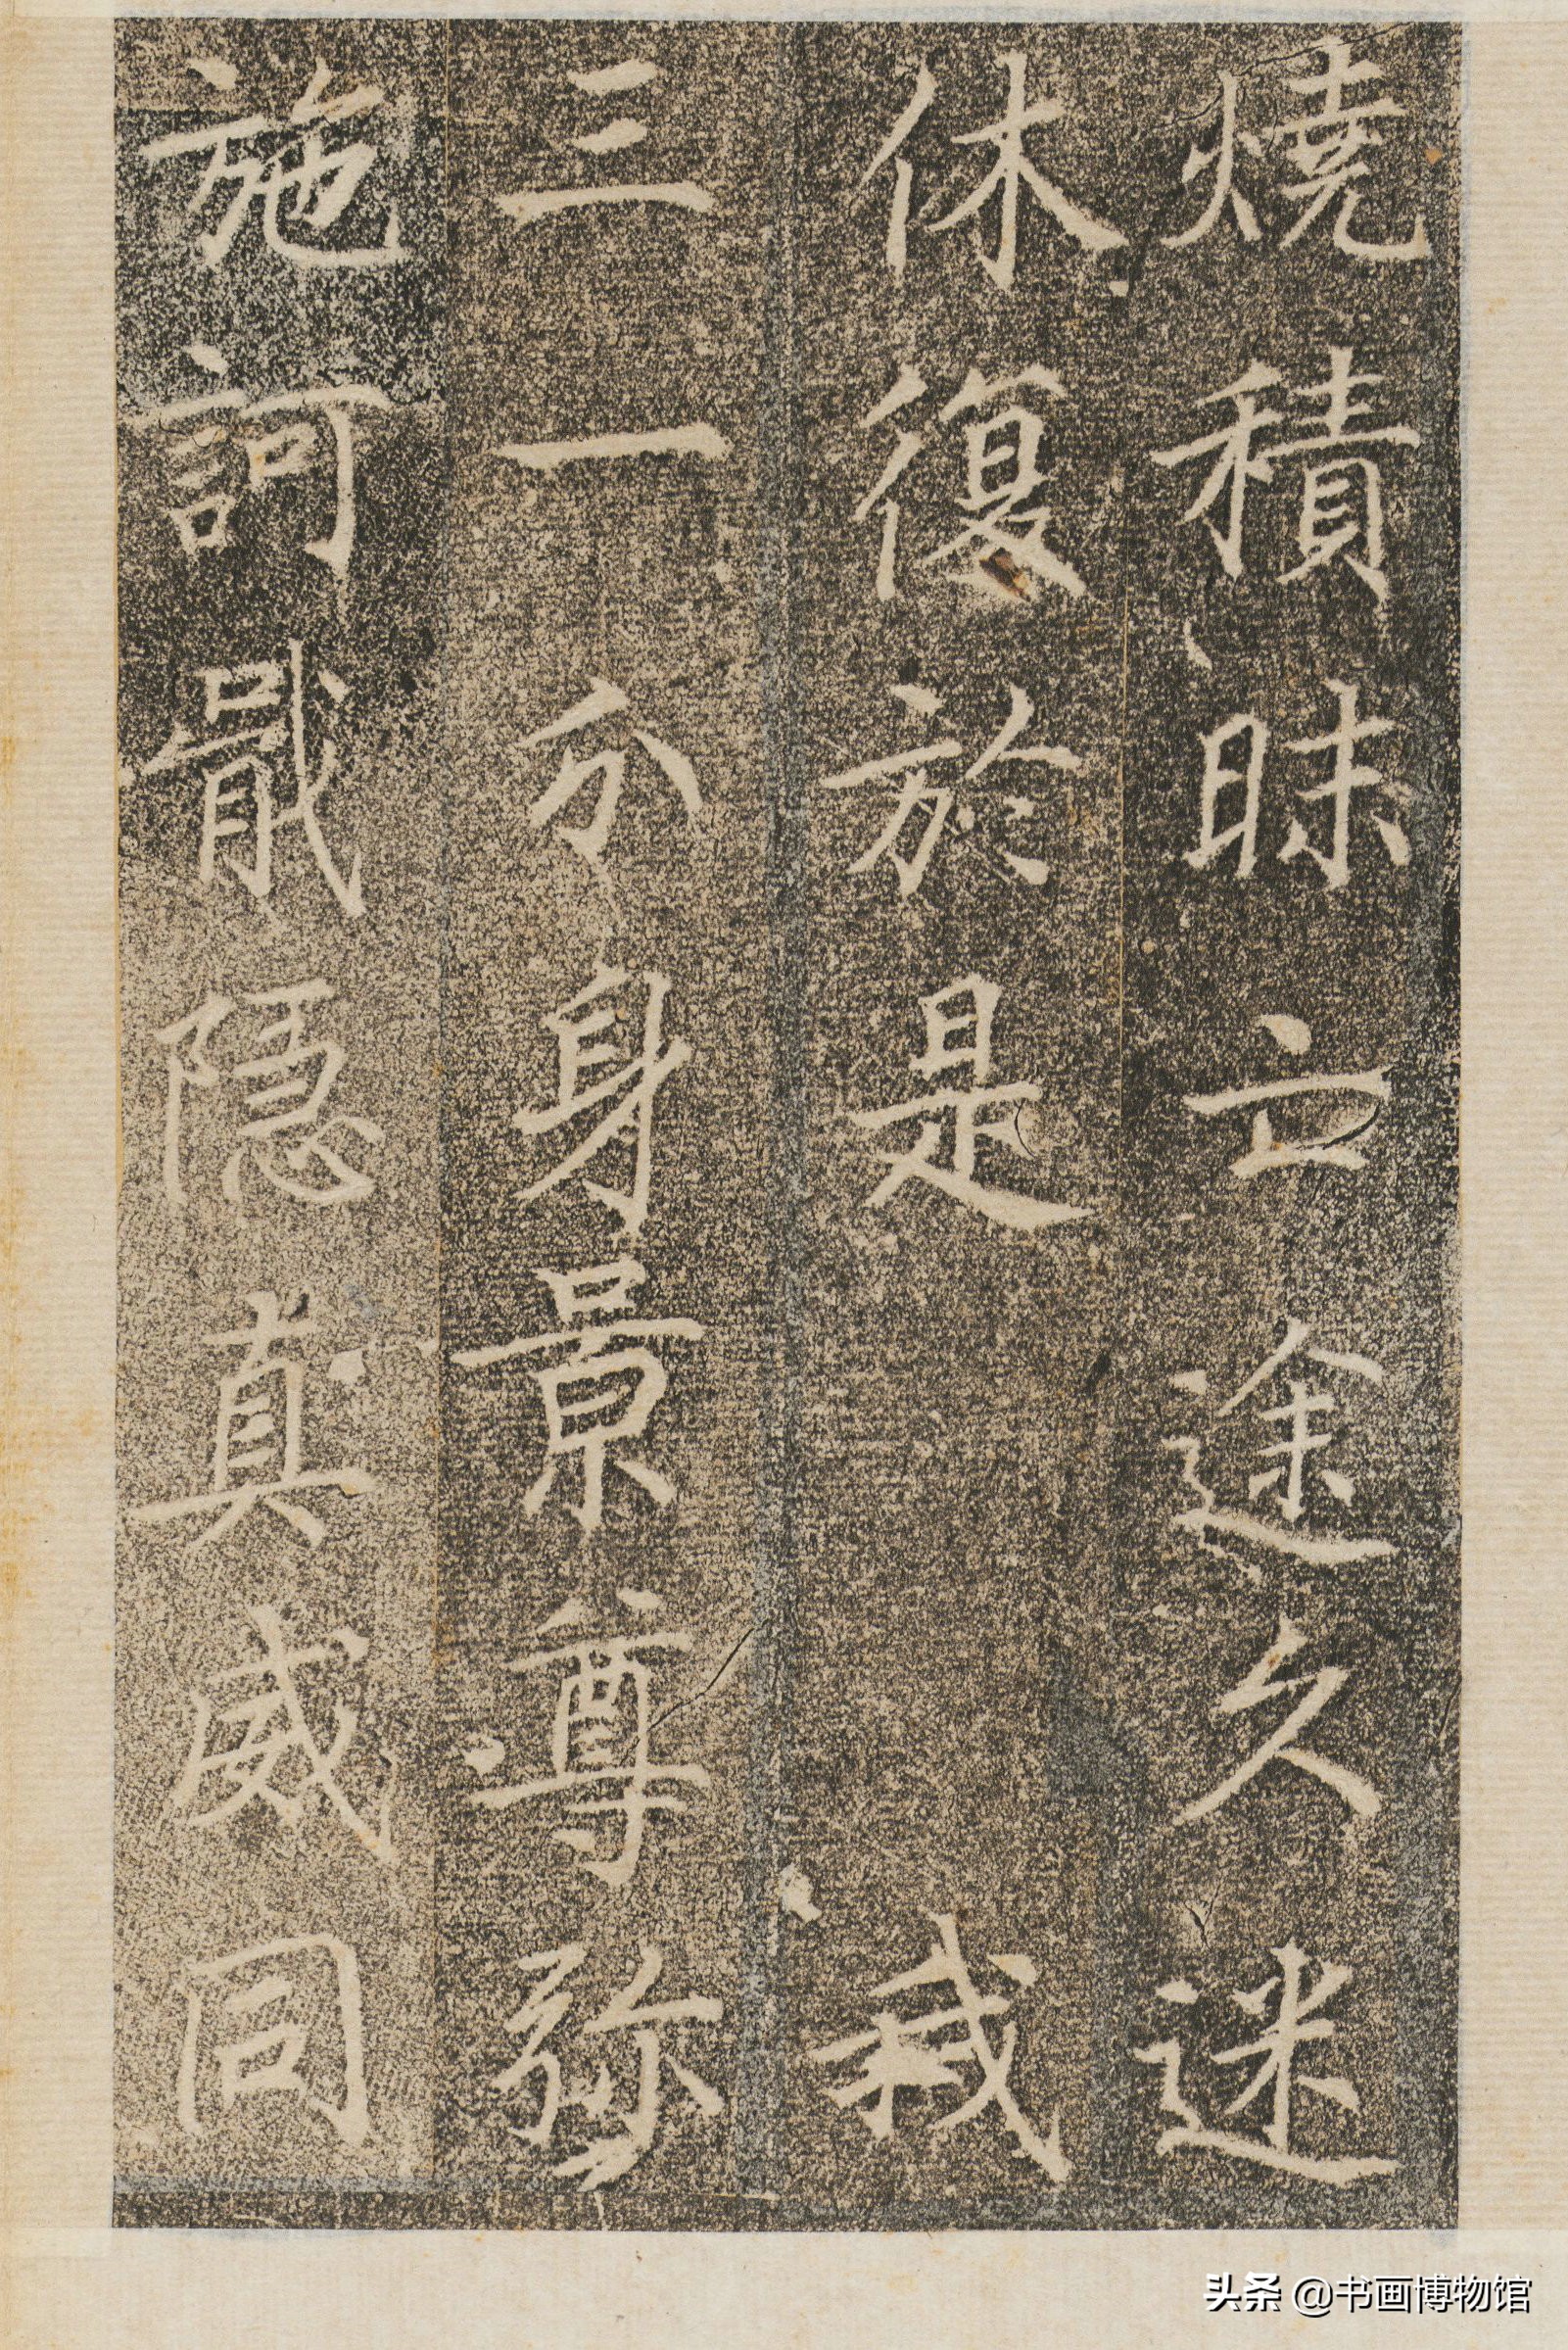 燒積昧亡途久迷
休復於是 我
三一分身景尊弥
施訶戢隱真威同
头条 @书画博物馆